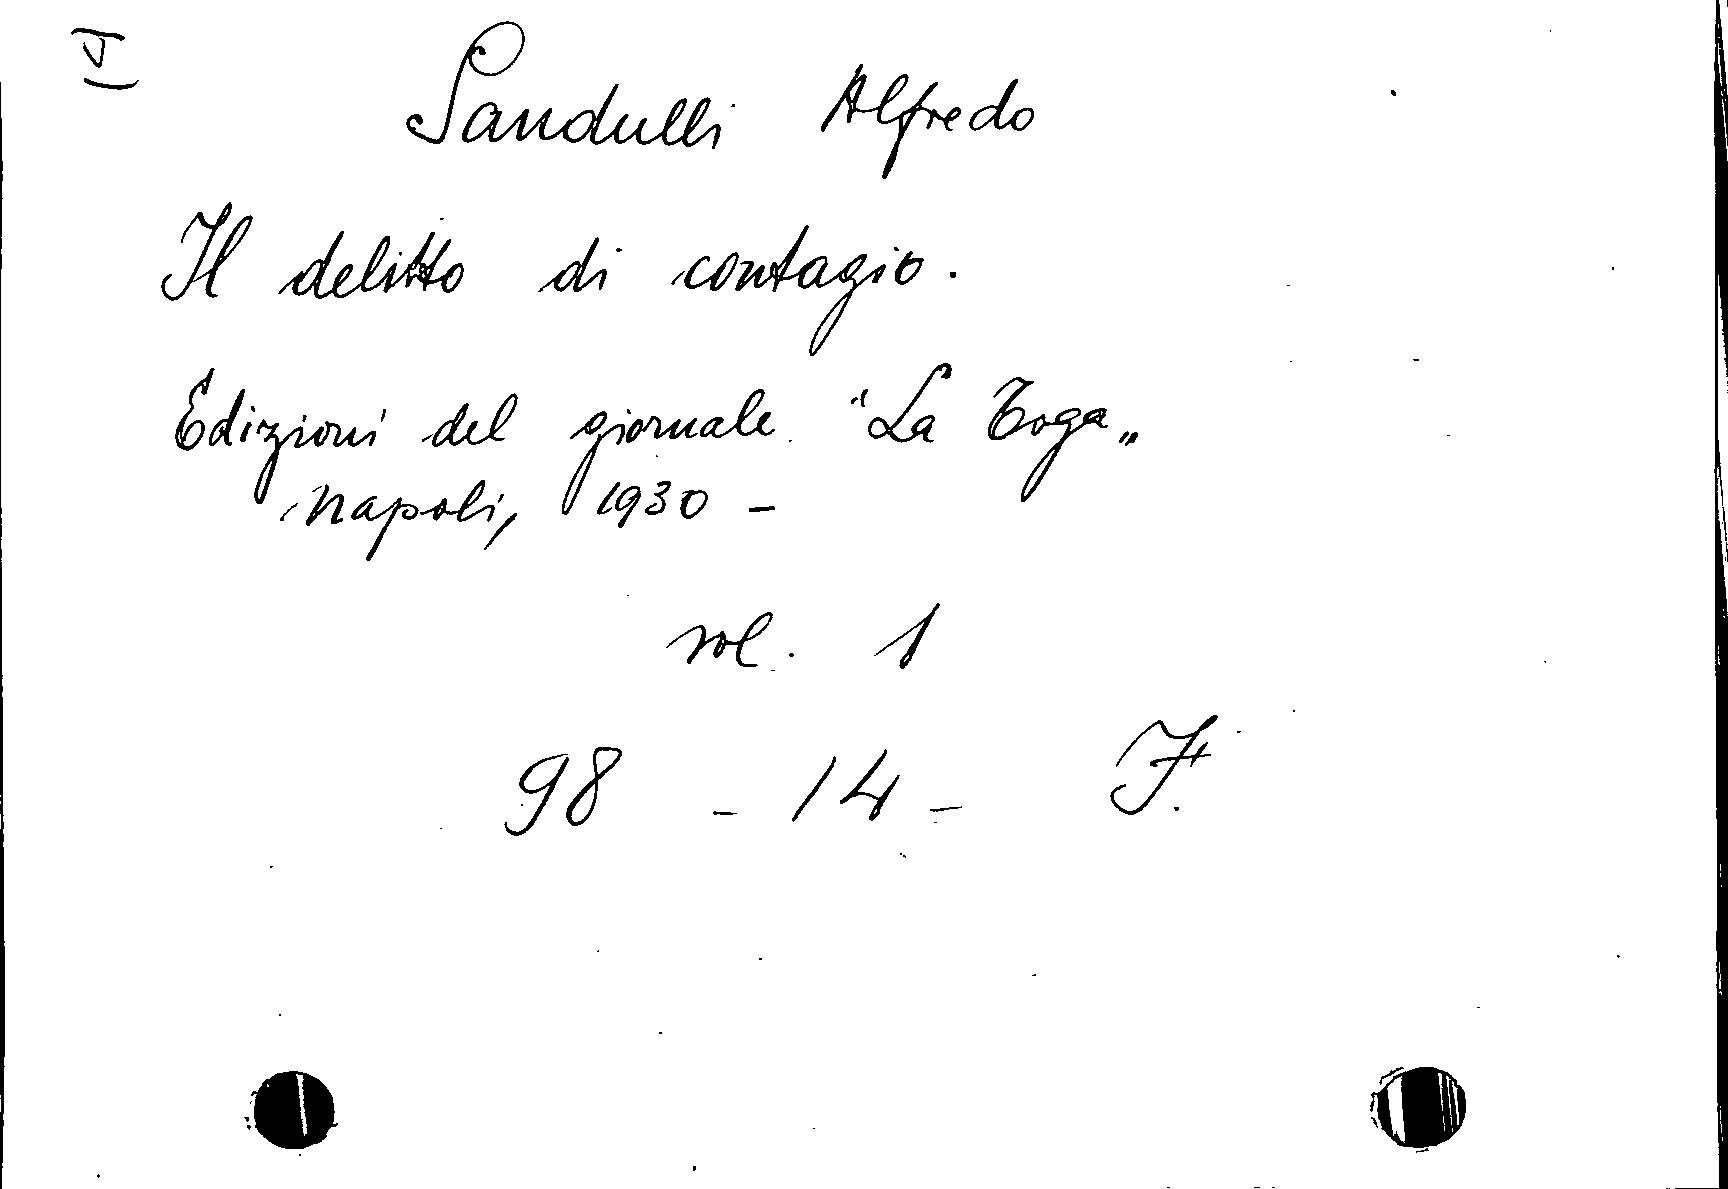 Sandulli Alfredo
Il delitto di contagio.
Edizioni del giornale "La Toga„
Napoli, 1930 -
vol. 1
98 - 14 - F.